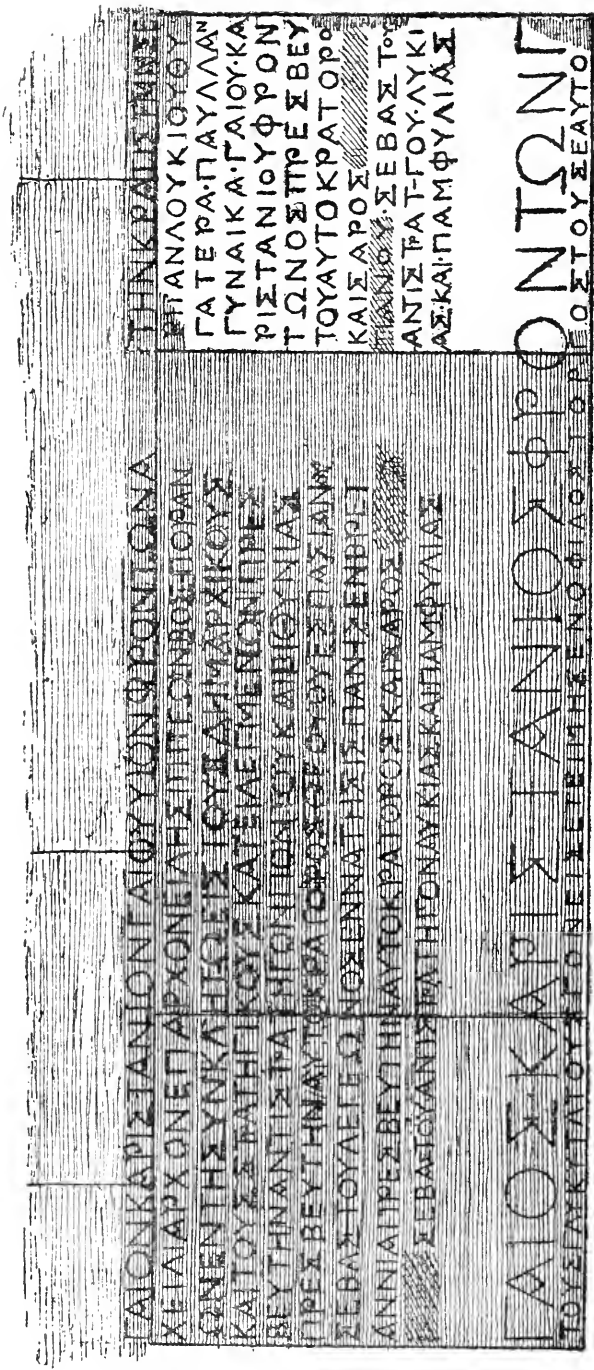 ΓΑΙΟΝΚΑΡΙΣΤΑΝΙΟΝΓΑΙΟΥΥΙΟΝΦΡΟΝΤΩΝΑ
ΧΕΙΛΙΑΡΧΟΝΕΠΑΡΧΟΝΕΙΛΗΣΙΠΠΕΩΝΒΟΣΠΟΡΑΝ
ΩΝΕΝΤΗΣΥΝΚΛΗΤΩΕΙΣΤΟΥΣΔΗΜΑΡΧΙΚΟΥΣ
ΚΑΙΤΟΥΣΣΤΡΑΤΗΓΙΚΟΥΣΚΑΤΕΙΛΕΓΜΕΝΟΝΠΡΕΣ
ΒΕΥΤΗΝΑΝΤΙΣΤΡΑΤΗΓΟΝΠΟΝΤΟΥΚΑΙΒΙΘΥΝΙΑΣ
ΠΡΕΣΒΕΥΤΗΝΑΥΤΟΚΡΑΤΟΡΟΣΘΕΟΥΟΥΕΣΠΑΣΙΑΝΟΥ
ΣΕΒΑΣΤΟΥΛΕΓΕΩΝΟΣΕΝΝΑΤΗΣΙΣΠΑΝΗΣΕΝΒΡΕΤ
ΑΝΝΙΑΠΡΕΣΒΕΥΤΗΝΑΥΤΟΚΡΑΤΟΡΟΣΚΑΙΣΑΡΟΣ
ΣΕΒΑΣΤΟΥΑΝΤΙΣΤΡΑΤΗΓΟΝΛΥΚΙΑΣΚΑΙΠΑΜΦΥΛΙΑΣ
ΡΠΑΝΛΟΥΚΙΟΥΘΥ
ΓΑΤΕΡΑ·ΠΑΥΛΛΑΝ
ΓΥΝΑΙΚΑ·ΓΑΙΟΥ·ΚΑ
ΡΙΣΤΑΝΙΟΥΦΡΟΝ
ΤΩΝΟΣΠΡΕΣΒΕΥ
ΤΟΥΑΥΤΟΚΡΑΤΟΡΟ
ΚΑΙΣΑΡΟΣ
ΤΙΑΝΟΥ·ΣΕΒΑΣΤΟΥ
ΑΝΙΣΤΡΑΤ-ΓΟΥ·ΛΥΚΙ
ΑΣ·ΚΑΙ·ΠΑΜΦΥΛΙΑΣ
ΤΟΥΣΓΛΥΚΥΤΑΤΟΥΣΓΟΝΕΙΣΕΤΕΙΜΗΣΕΝΟΦΙΛΟΣΤΟΡΓΟΣΤΟΥΣΕΑΥΤΟ